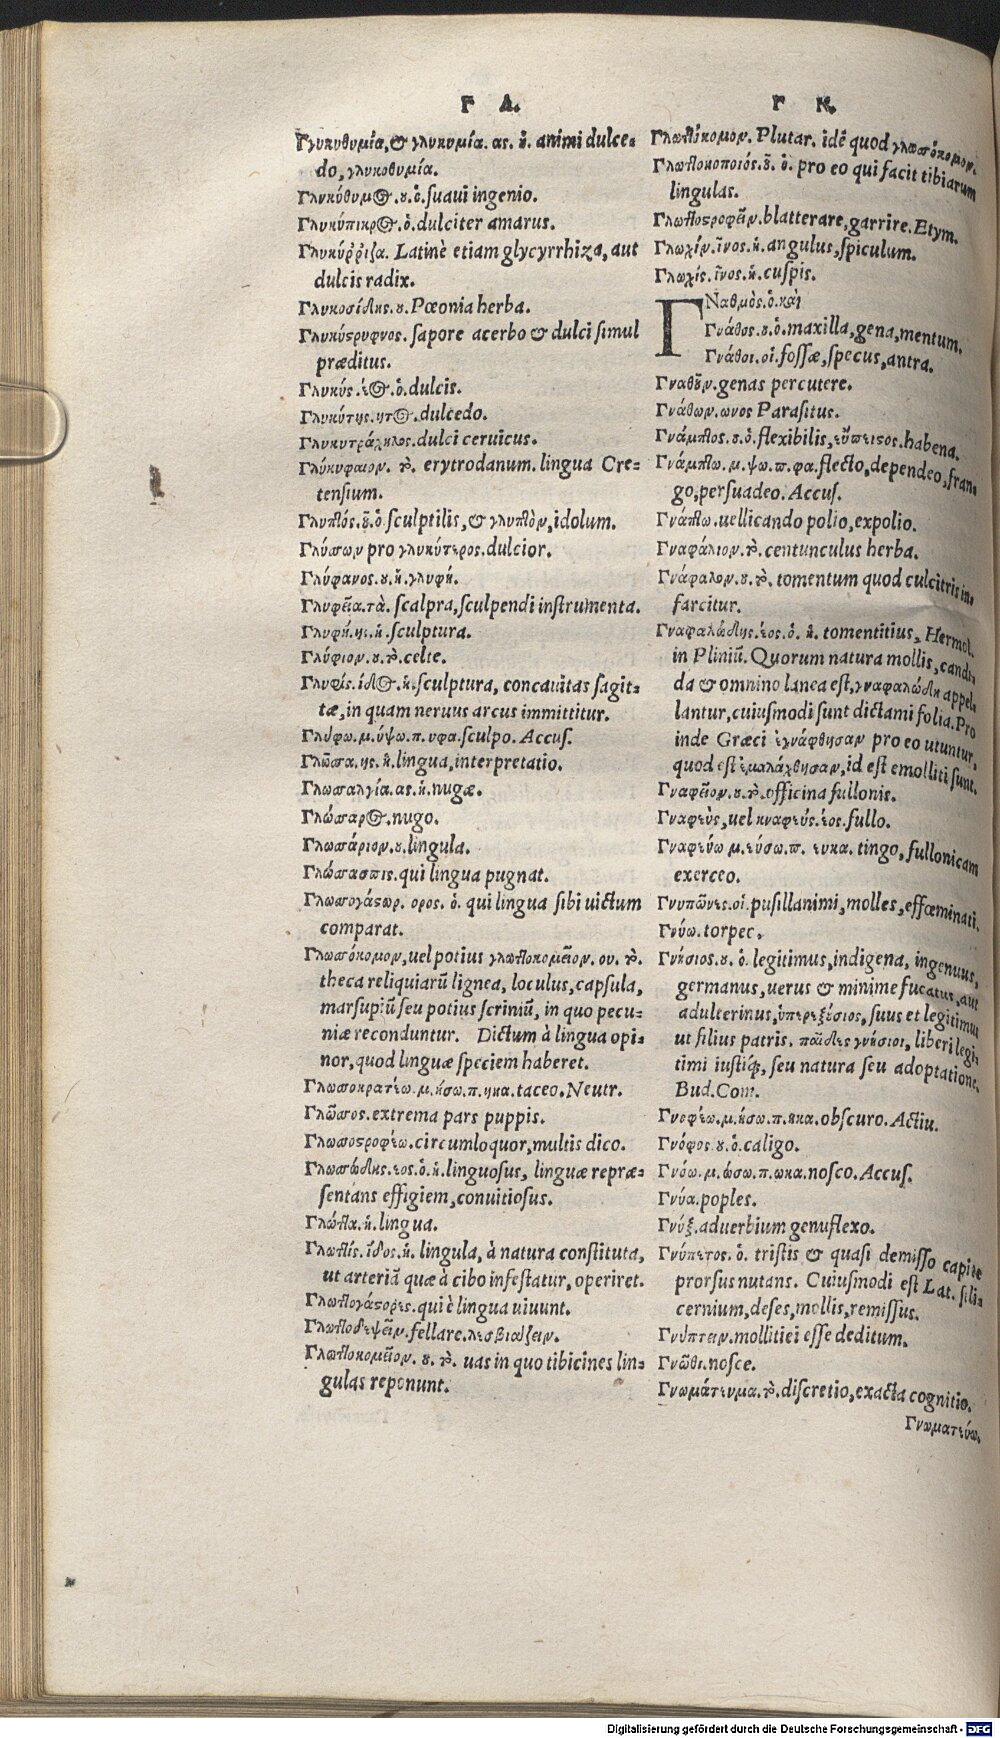 Γ Λ.
Γλυκυθυμία, & γλυκυμία. ας. ἡ. animi dulce-
do, γλυκοθυμία.
Γλυκύθυμος. ου. ὁ. suaui ingenio.
Γλυκύπικρος. ὁ. dulciter amarus.
Γλυκύῤῥιζα. Latinè etiam glycyrrhiza, aut
dulcis radix.
Γλυκοσίδης. ου. Pœonia herba.
Γλυκύστρυφνος. sapore acerbo & dulci simul
præditus.
Γλυκύς. έος. ὁ. dulcis.
Γλυκύτης. ητος. dulcedo.
Γλυκυτράχηλος. dulci ceruicus.
Γλύκυφαιον. τὸ. erytrodanum. lingua Cre-
tensium.
Γλυπτός. οῦ. ὁ. sculptilis, & γλυπτὸν, idolum.
Γλύσσων pro γλυκύτερος. dulcior.
Γλύφανος. ου. ἡ. γλυφή.
Γλυφεῖα. τὰ. scalpra, sculpendi instrumenta.
Γλυφή. ῆς. ἡ. sculptura.
Γλύφιον. ου. τὸ. celte.
Γλυφίς. ίδος. ἡ. sculptura, concauitas sagit-
tæ, in quam neruus arcus immittitur.
Γλύφω. μ. ύψω. π. υφα. sculpo. Accus.
Γλῶσσα. ης. ἡ. lingua, interpretatio.
Γλωσσαλγία. ας. ἡ. nugæ.
Γλώσσαργος. nugo.
Γλωσσάριον. ου. lingula.
Γλώσσασπις. qui lingua pugnat.
Γλωσσογάστωρ. ορος. ὁ. qui lingua sibi uictum
comparat.
Γλωσσόκομον, uel potius γλωττοκομεῖον. ου. τὸ.
theca reliquiarũ lignea, loculus, capsula,
marsupiũ seu potius scriniũ, in quo pecu-
niæ reconduntur. Dictum à lingua opi-
nor, quod linguæ speciem haberet.
Γλωσσοκρατέω. μ. ήσω. π. ηκα. taceo. Neutr.
Γλῶσσος. extrema pars puppis.
Γλωσσοστροφέω. circumloquor, multis dico.
Γλωσσώδης. εος. ὁ. ἡ. linguosus, linguæ repræ-
sentans effigiem, conuitiosus.
Γλῶττα. ἡ. lingua.
Γλωττίς. ίδος. ἡ. lingula, à natura constituta,
ut arteriã quæ à cibo infestatur, operiret.
Γλωττογάστορες. qui è lingua uiuunt.
Γλωττοδεψεῖν. fellare. λεσβιάζειν.
Γλωττοκομεῖον. ου. τὸ. uas in quo tibicines lin-
gulas reponunt.
Γ Ν.
Γλωττόκομον. Plutar. idẽ quod γλωσσόκομον.
Γλωττοκοποιός. οῦ. ὁ. pro eo qui facit tibiarum
lingulas.
Γλωττοστροφεῖν. blatterare, garrire. Etym.
Γλωχίν. ῖνος. ἡ. angulus, spiculum.
Γλωχίς. ῖνος. ἡ. cuspis.
ΓΝαθμὸς. ὁ. καὶ
Γνάθος. ου. ὁ. maxilla, gena, mentum.
Γνάθοι. οἱ. fossæ, specus, antra.
Γναθοῦν. genas percutere.
Γνάθων. ωνος Parasitus.
Γνάμπτος. ου. ὁ. flexibilis, εὔπειστος. habena.
Γνάμπτω. μ. ψω. π. φα. flecto, dependeo, fran-
go, persuadeo. Accus.
Γνάπτω. uellicando polio, expolio.
Γναφάλιον. τὸ. centunculus herba.
Γνάφαλον. ου. τὸ. tomentum quod culcitris in-
farcitur.
Γναφαλώδης. εος. ὁ. ἡ. tomentitius, Hermol.
in Pliniũ. Quorum natura mollis, candi-
da & omnino lanea est, γναφαλώδη appel-
lantur, cuiusmodi sunt dictami folia. Pro
inde Græci ἐγνάφθησαν pro eo utuntur,
quod est ἐμαλάχθησαν, id est emolliti sunt.
Γναφεῖον. ου. τὸ. officina fullonis.
Γναφεὺς, uel κναφεύς. έος. fullo.
Γναφεύω μ. εύσω. π. ευκα. tingo, fullonicam
exerceo.
Γνυπῶνες. οἱ. pusillanimi, molles, effœminati.
Γνύω. torpec.
Γνήσιος. ου. ὁ. legitimus, indigena, ingenuus,
germanus, uerus & minime fucatus, aut
adulterinus, ὑπερεξούσιος, suus et legitimus
ut filius patris. παῖδες γνήσιοι, liberi legi-
timi iustíq;, seu natura seu adoptatione.
Bud. Com.
Γνοφέω. μ. ήσω. π. ηκα. obscuro. Actiu.
Γνόφος ου. ὁ. caligo.
Γνόω. μ. ώσω. π. ωκα. nosco. Accus.
Γνύα. poples.
Γνύξ. aduerbium genuflexo.
Γνύπετος. ὁ. tristis & quasi demisso capite
prorsus nutans. Cuiusmodi est Lat. sili-
cernium, deses, mollis, remissus.
Γνύπτειν. mollitiei esse deditum.
Γνῶθι. nosce.
Γνωμάτευμα. τὸ. discretio, exacta cognitio.
Γνωματεύω.
Digitalisierung gefördert durch die Deutsche Forschungsgemeinschaft - DFG